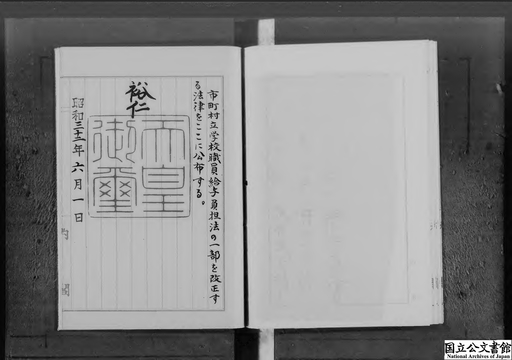 市町村立学校職員給与負担法の一部を改正す
る法律をここに公布する。
裕仁
天皇
御璽
昭和三十三年六月一日
内閣
国立公文書館
National Archives of Japan